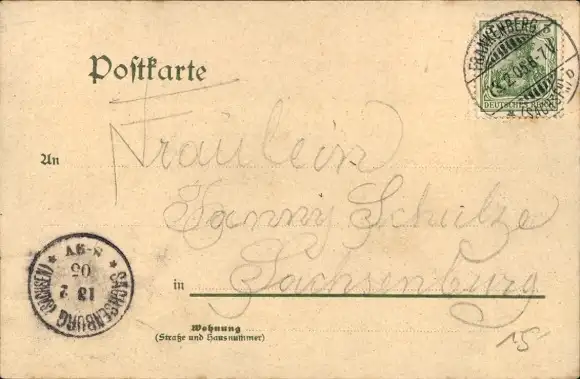 Postkarte
FRANKENBERG
DEUTSCHES REICH
An
Fräulein
Fanny Schulze
in Sachsenburg
Wohnung
(Straße und Hausnummer)
SACHSENBURG (SACHSEN)
18 2
05
8-9V
15